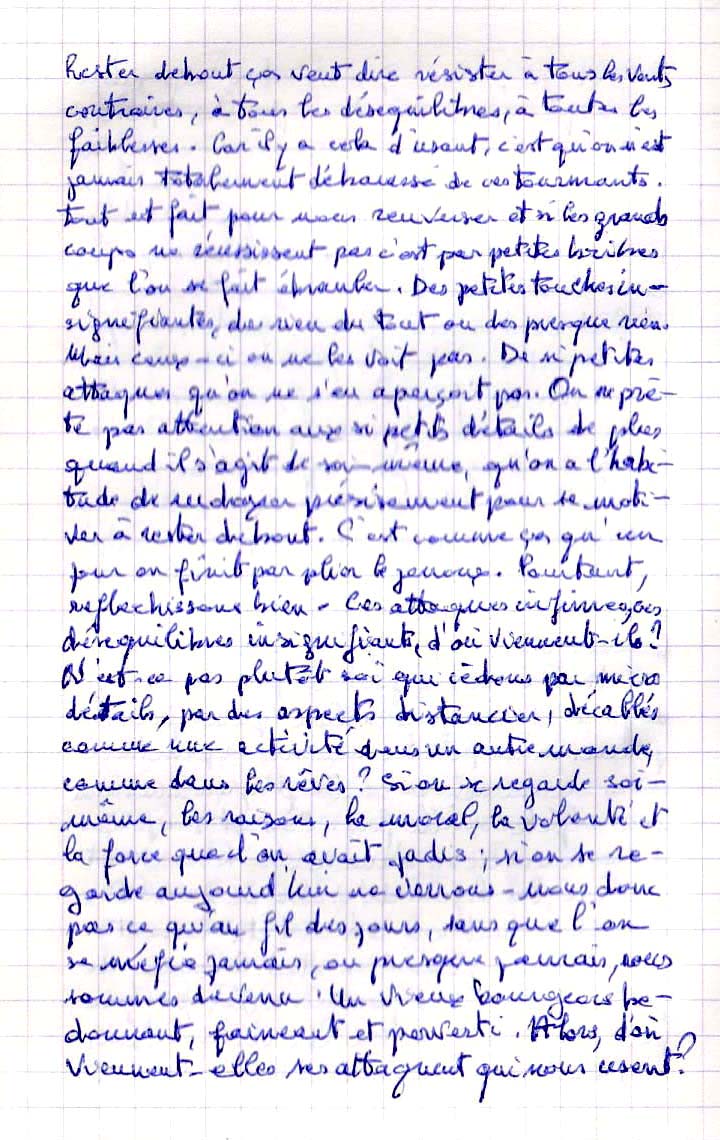 Rester debout ça veut dire résister à tous les vents
contraires, à tous les déséquilibres, à toutes les
faiblesses. Car il y a cela d'usant, c'est qu'on n'est
jamais totalement débarassé de ces tourmants.
Tout est fait pour nous renverser et si les grands
coups ne réussissent pas c'est par petites bribes
que l'on se fait ébranler. Des petites touches in-
signifiantes, des rien du tout ou des presque rien.
Mais ceux-ci on ne les voit pas. De si petites
attaques qu'on ne s'en aperçoit pas. On ne prê-
te pas attention aux si petits détails de plus
quand il s'agit de soi-même, qu'on a l'habi-
tude de précisement pour se moti-
ver à rester debout. C'est comme ça qu'un
jour on finit par plier le genoux. Pourtant,
reflechissons bien - Ces attaques infimes, ces
déséquilibres insignifiants, d'où viennent-ils?
N'est-ce pas plutôt soi qui cèdons par micro
détails, par des aspects distancier, décablés
comme une activité dans un autre monde,
comme dans les rêves? Si on se regarde soi-
même, les raisons, la moral, la volonté et
la force que l'on avait jadis; si on se re-
garde aujourd'hui ne verrons-nous donc
pas ce qu'au fil des jours, sans que l'on
se méfie jamais, ou presque jamais, nous
sommes devenu. Un vieux bourgeois be-
donnant, faineant et perverti. Alors, d'où
viennent-elles ses attaquent qui nous usent?